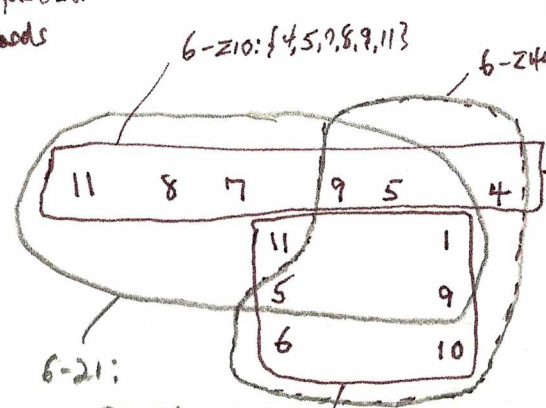 6-Z10: {4,5,7,8,9,11}
6-Z4
11 8 7 9 5 4
11 1
5 9
6 10
6-21: